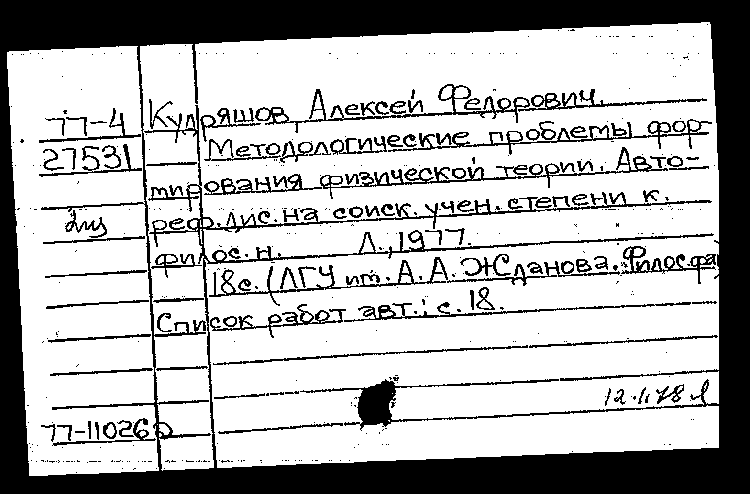 77-4 Кудряшов, Алексей Федорович.
27531 Методологические проблемы фор-
мирования физической теории. Авто-
реф. дис. на соиск. учен. степени к.
филос. н. Л., 1977.
18 с. (ЛГУ им. А. А. Жданова. Филос. фа
Список работ авт.: с. 18.
12.1.78
77-11026